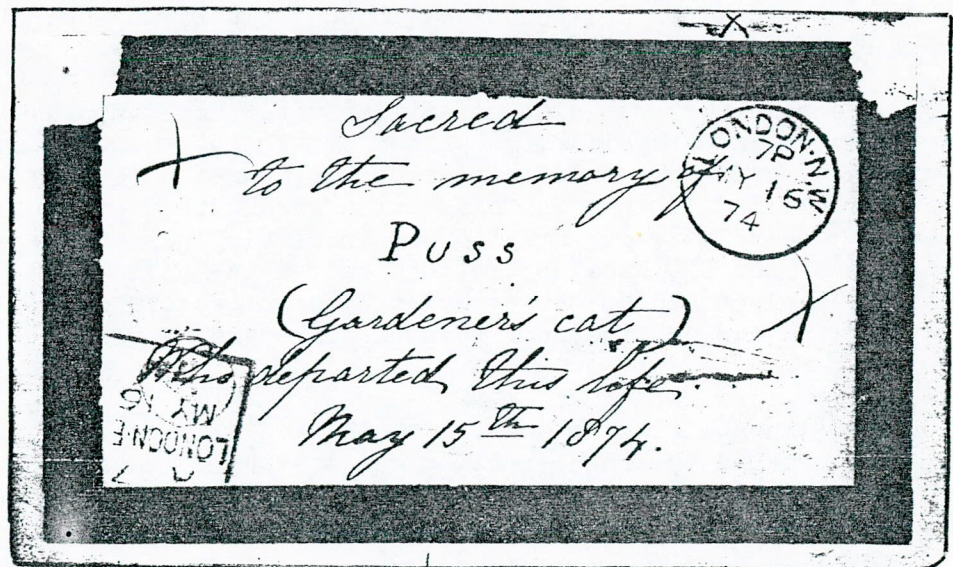 Sacred
to the memory of
Puss
(Gardener's cat)
Who departed this life
May 15th 1874.
LONDON·N.W
7P
MY 16
74
LONDON E
MY 16
A
7